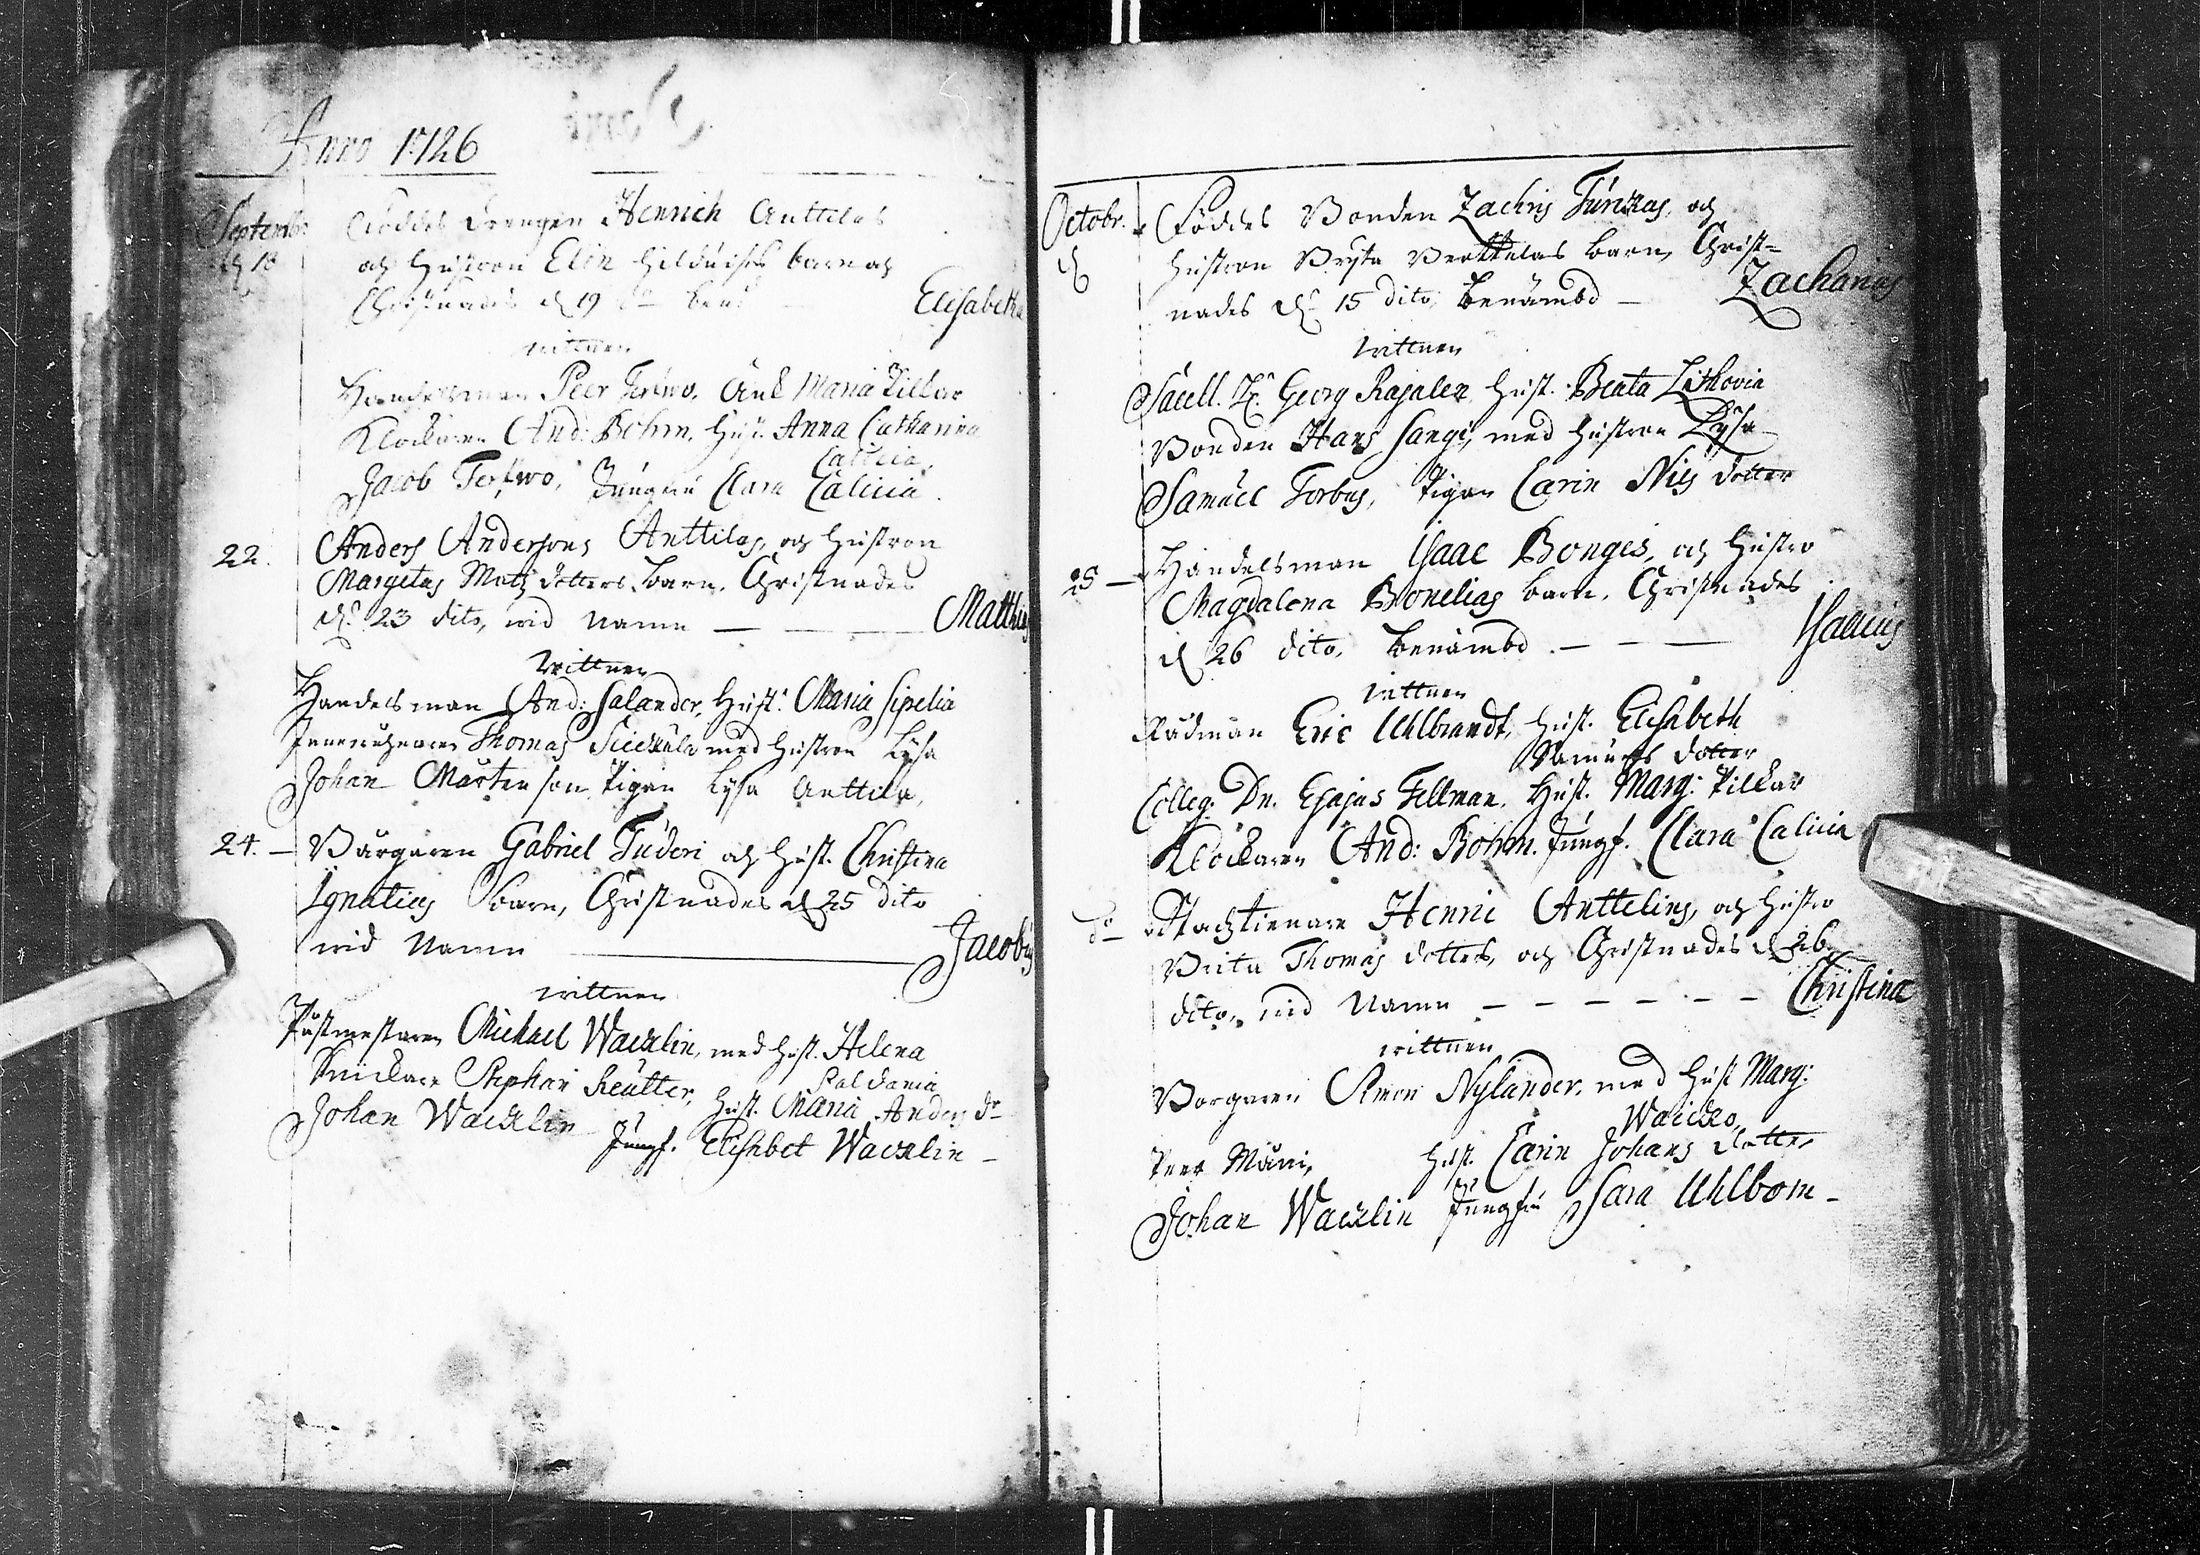 Anno 1726
Septembr Föddes Drengen Henrich Anttilas
d 18 och Hustron Elin barn och
Christnades d 19 Elisabetha
wittnen
Handelsman Peer Terfwo, Änk Maria Pillar
Klockaren And: Bohm, Hust. Anna Catharina
Calicia,
Jacob Terfwo, Jungfru Clara Calicia.
22. Anders Andersons Anttilas, och Hustron
Margetas Matz dotters barn, Christnades
d. 23 dito, wid Namn — — Matthias
Wittnen
Handelsman And: Salander, Hust: Maria Sipelia
Thomas med Hustron Lysa
Johan Mårtenson, Pigan Lysa Anttila,
24. — Borgaren Gabriel Tuderi och Hust. Christina
Ignatius barn, Christnades d 25 dito
wid Namn — Jacobus
wittnen
Postmestaren Michael Wacklin, med Hust. Helena
Paldania
Stephan Reutter, Hust. Maria Anders dr
Johan Wacklin Jungf. Elisabet Wacklin —
Octobr. Föddes Bonden Zachris Turkas, och
d Hustron Bryta Perttulas barn, Christ=
nades d. 15 dito, benämbd — Zacharias
wittnen
Sacell. Hr. Georg Rajalen, Hust. Beata Lithovia
Bonden Hans Sangi, med Hustron Lysa
Samuel Forbus, Pigan Carin Nils dotter
25 — Handelsman Isaac Bonges, och Hustro
Magdalena Bonelias barn, Christnades
d 26 dito, benämbd — — — Isaacus
wittnen
Rådman Eric Uhlbrandt, Hust. Elisabeth
Samuels dotter
Colleg. Dn. Esajas Fellman, Hust. Marg: Pillar
Klockaren And: Bohm. Jungf. Clara Calicia
do — Wachtienare Henric Anttelins, och Hustro
Brita Thomas dotters, och Christnades d 26
dito, wid Namn — — — — — — Christina
wittnen
Borgaren Simon Nylander, med Hust Marg:
Waicko,
Peer Mäuri, Hust. Carin Johans dotter
Johan Wacklin Jungfru Sara Uhlbom —